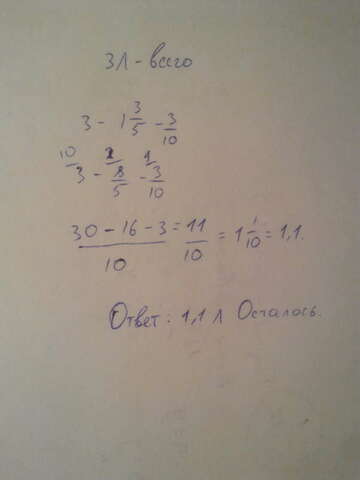 3л - всего
3 - 1 3/5 - 3/10
10 2 1
3 - 8/5 - 3/10
30 - 16 - 3 / 10 = 11/10 = 1 1/10 = 1,1.
Ответ: 1,1 л Осталось.